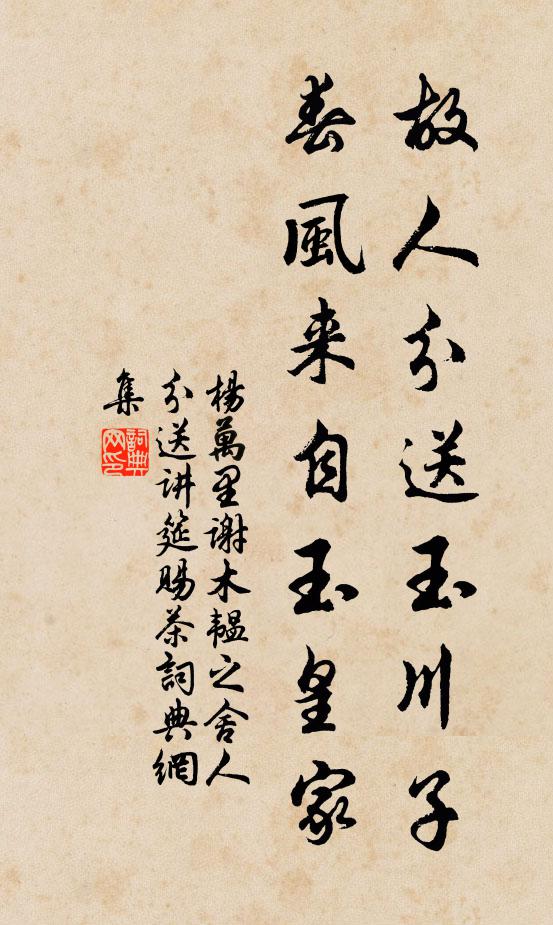 故人分送玉川子
春風来自玉皇家
楊萬里謝木韞之舍人
分送讲筵賜茶詞典網
集
詞典
网印